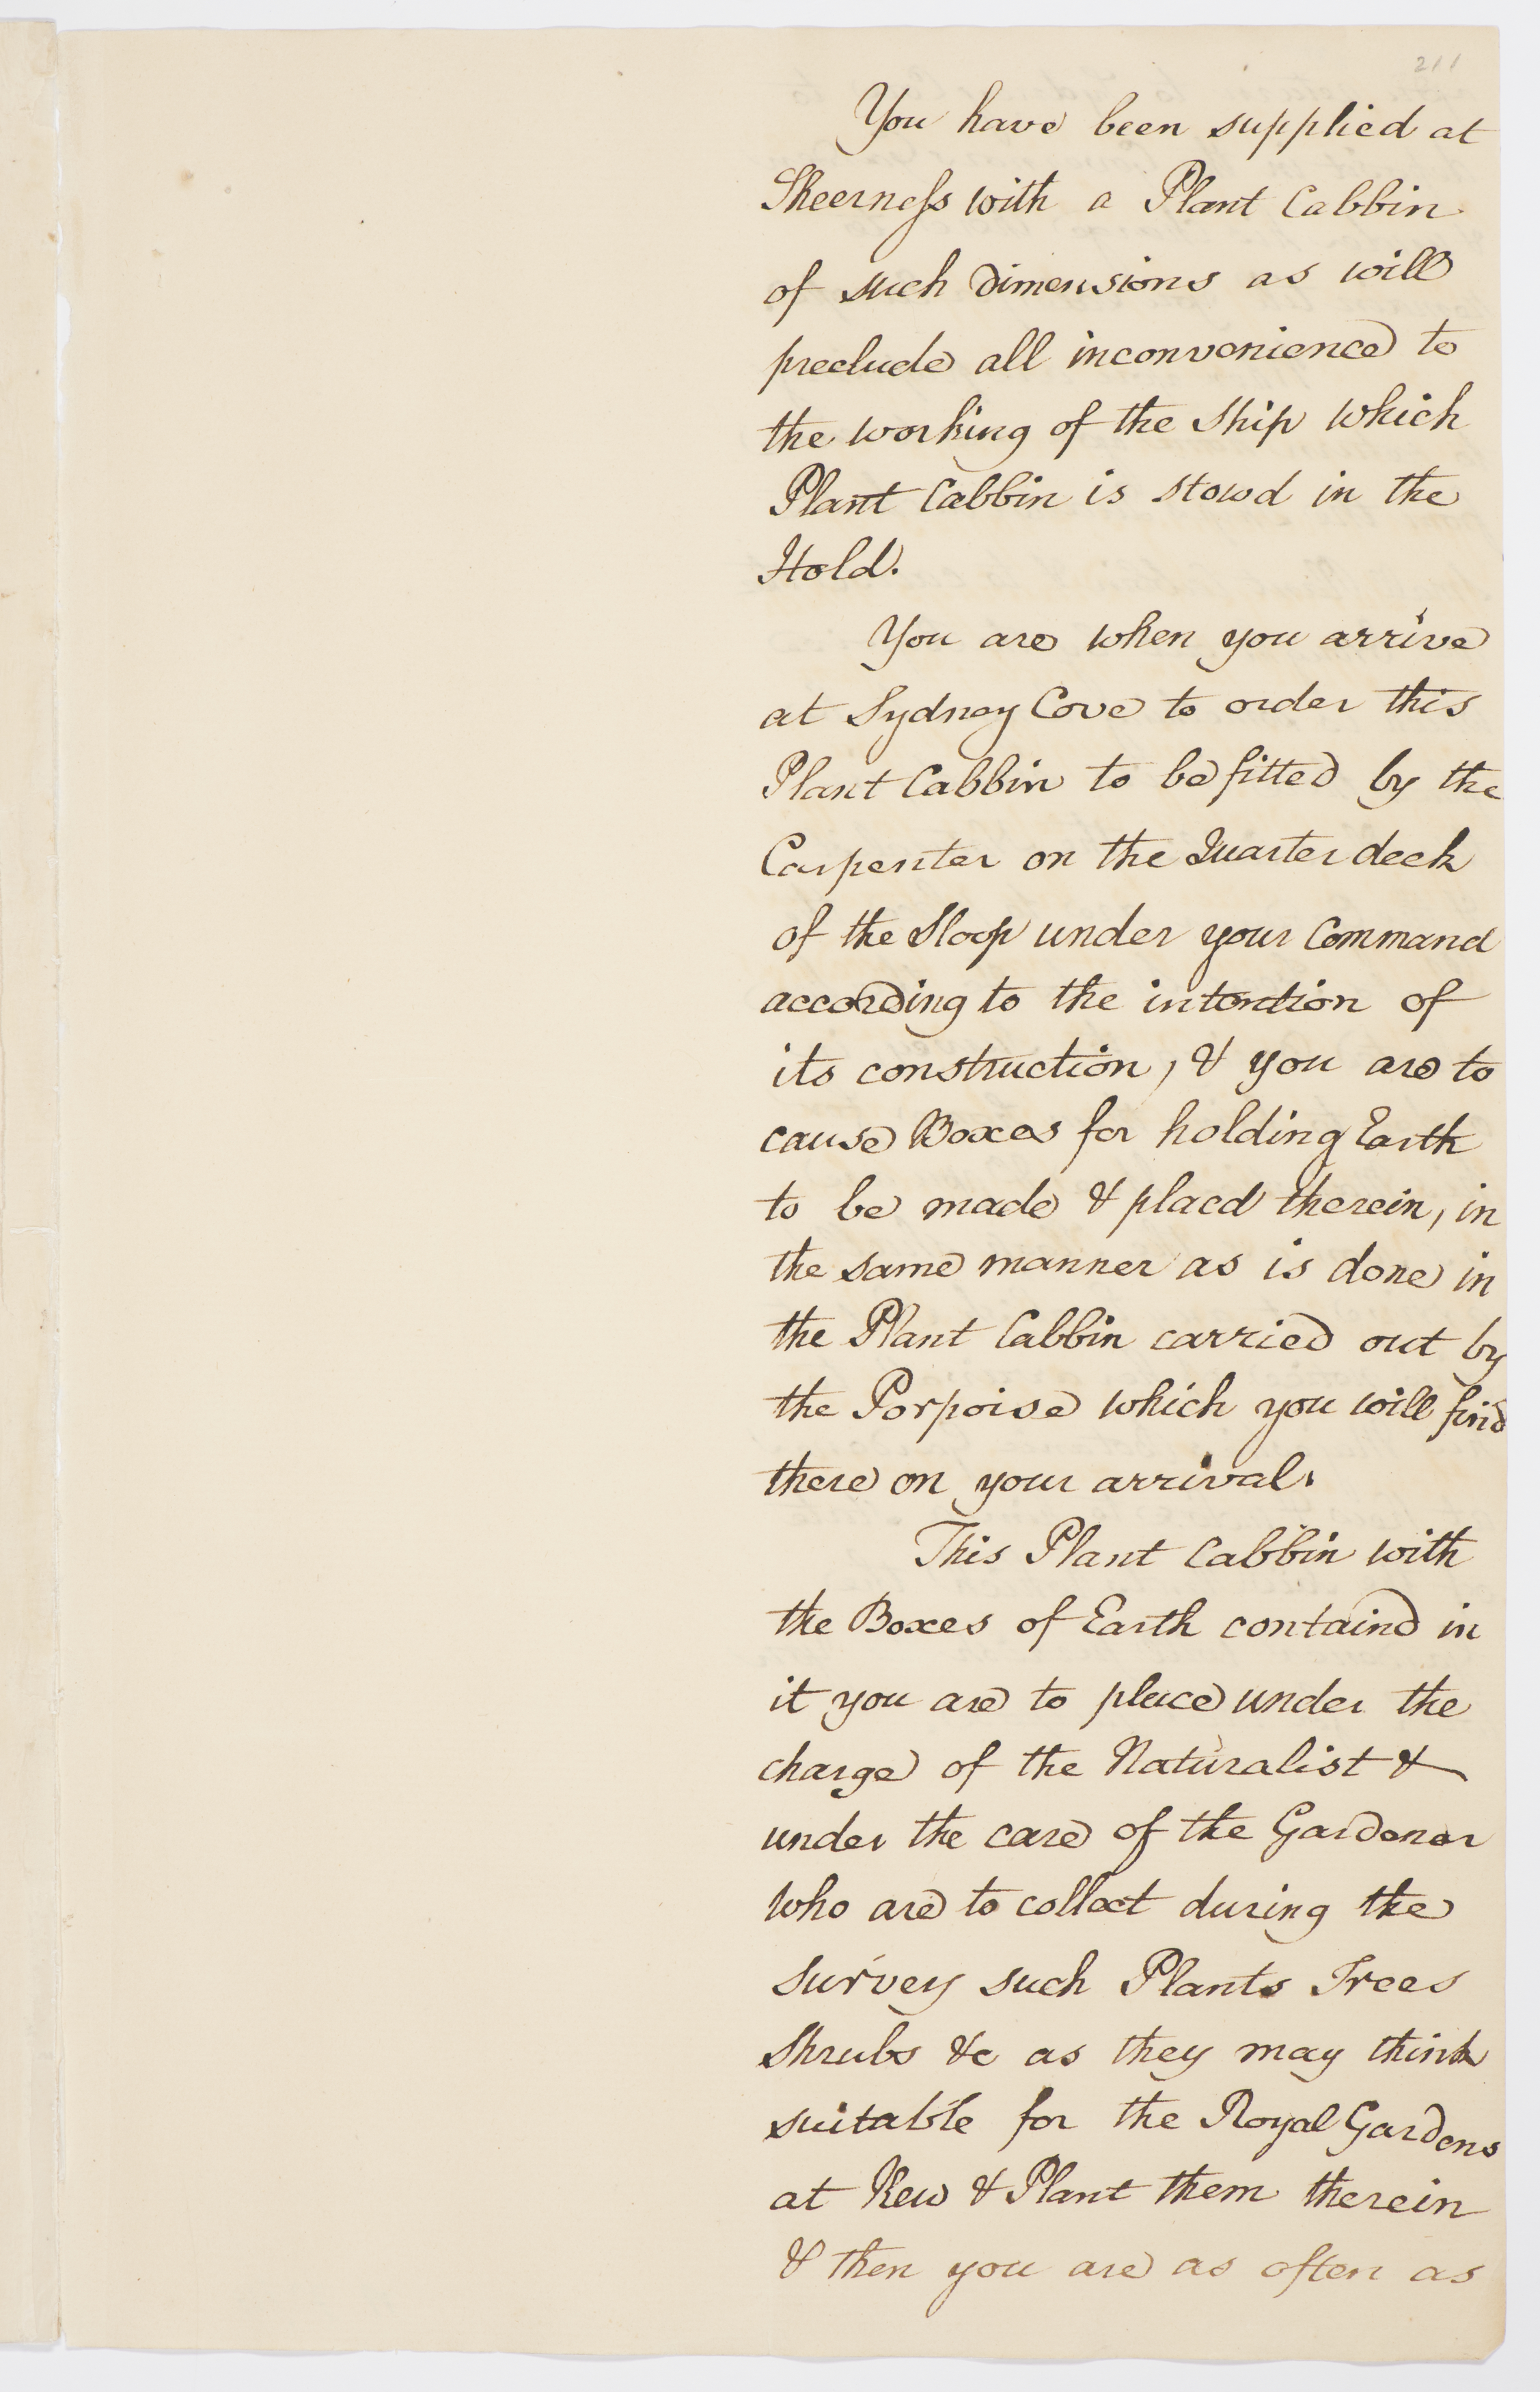 211
You have been supplied at
Sheerness with a Plant Cabbin
of such dimensions as will
preclude all inconvenience to
the working of the Ship which
Plant Cabbin is stowd in the
Hold.
You are when you arrive
at Sydney Cove to order this
Plant Cabbin to be fitted by the
Carpenter on the Quarter deck
of the Sloop under your Command
according to the intention of
its construction, & you are to
cause Boxes for holding Earth
to be made & placd therein, in
the same manner as is done in
the Plant Cabbin carried out by
the Porpoise which you will find
there on your arrival.
This Plant Cabbin with
the Boxes of Earth containd in
it you are to place under the
charge of the Naturalist &
under the care of the Gardener
who are to collect during the
survey such Plants Trees
Shrubs &c as they may think
suitable for the Royal Gardens
at Kew & Plant them therein
& then you are as often as